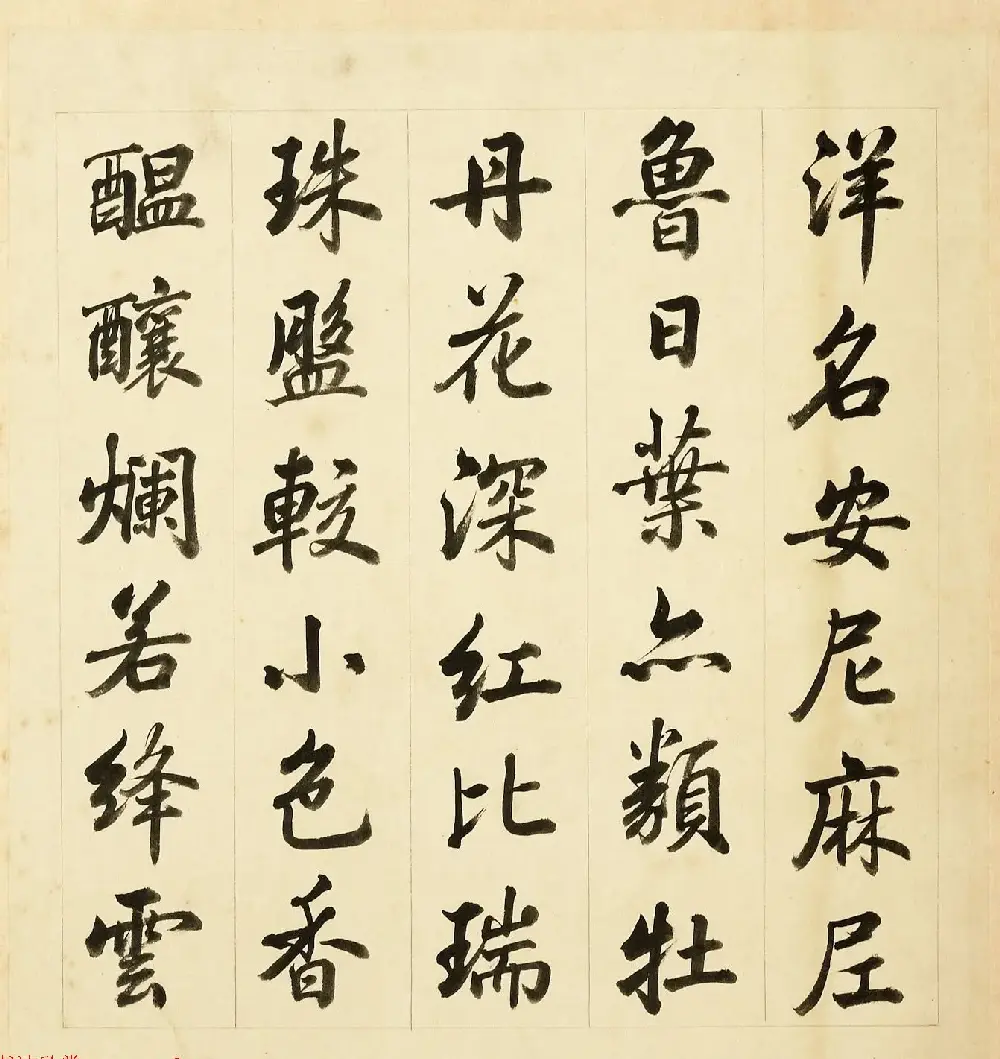 洋名安尼麻尼
魯日葉亦類牡
丹花深紅比瑞
珠盤較小色香
醖釀爛若絳雲